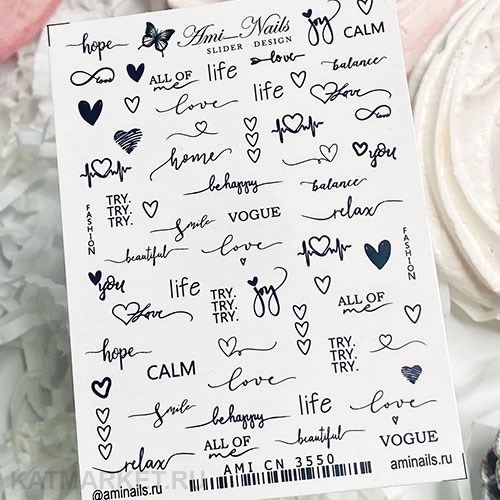 hope
Ami_Nails
SLIDER DESIGN
joy
CALM
love
ALL OF
me
life
love
balance
love
life
Love
love
home
you
be happy
balance
FASHION
TRY.
TRY.
TRY.
Smile
VOGUE
relax
beautiful
love
FASHION
you
life
TRY.
TRY.
TRY.
joy
ALL OF
me
Love
hope
CALM
love
TRY.
TRY.
TRY.
Smile
be happy
life
love
relax
ALL OF
me
beautiful
VOGUE
AMI CN 3550
@aminails.ru
aminails.ru
KATMARKET.RU